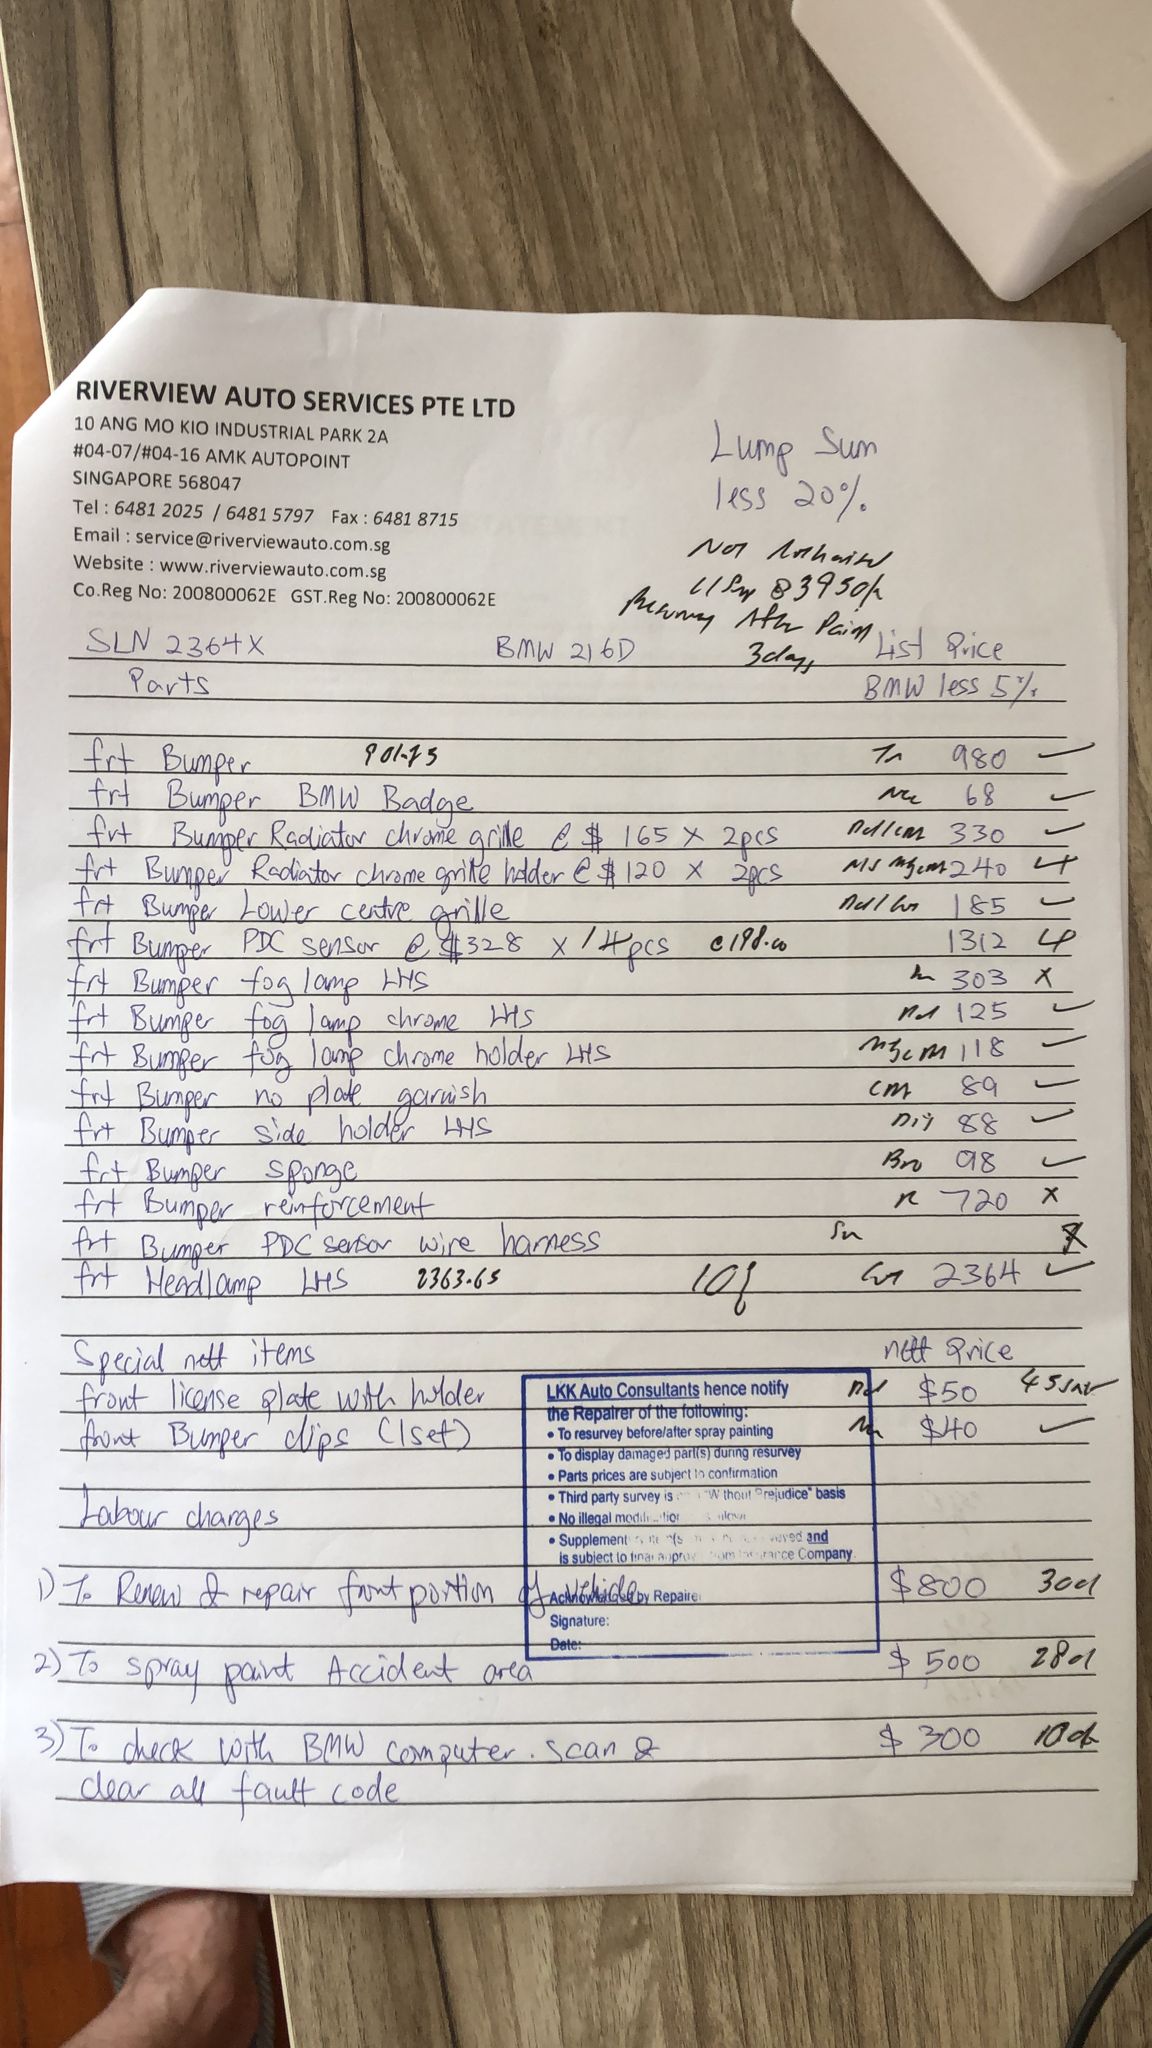 RIVERVIEW AUTO SERVICES PTE LTD
10 ANG MO KIO INDUSTRIAL PARK 2A
#04-07/#04-16 AMK AUTOPOINT
SINGAPORE 568047
Tel : 6481 2025 / 6481 5797 Fax : 6481 8715
Email : service@riverviewauto.com.sg
Website : www.riverviewauto.com.sg
Co.Reg No: 200800062E GST.Reg No: 200800062E
Lump Sum
less 20%
Not
@ 3950/-
After Paint
3 days
SLN 2364X BMW 216D List Price
Parts BMW less 5%
frt Bumper 980 ✓
frt Bumper BMW Badge 68 ✓
frt Bumper Radiator chrome grille @ $ 165 x 2pcs 330 ✓
frt Bumper Radiator chrome grille holder @ $120 x 2pcs 240
frt Bumper Lower centre grille 185 ✓
frt Bumper PDC sensor @ $328 x 4pcs 1312
frt Bumper fog lamp LHS 303 x
frt Bumper fog lamp chrome LHS 125 ✓
frt Bumper fog lamp chrome holder LHS 118 ✓
frt Bumper no plate garnish cm 89 ✓
frt Bumper side holder LHS 88 ✓
frt Bumper sponge 98 ✓
frt Bumper reinforcement R 720 x
frt Bumper PDC sensor wire harness x
frt Headlamp LHS 2363.65 2364 ✓
Special nett items nett Price
front license plate with holder $50
front Bumper clips (1set) $40 ✓
LKK Auto Consultants hence notify
the Repairer of the following:
• To resurvey before/after spray painting
• To display damaged part(s) during resurvey
• Parts prices are subject to confirmation
• Third party survey is "Without Prejudice" basis
• No illegal
• and
is subject to final Insurance Company
Acknowledged by Repairer
Signature:
Date:
Labour charges
1) To Renew & repair front portion of vehicle $800
2) To spray paint Accident area $500
3) To check with BMW computer. scan & $300
clear all fault code